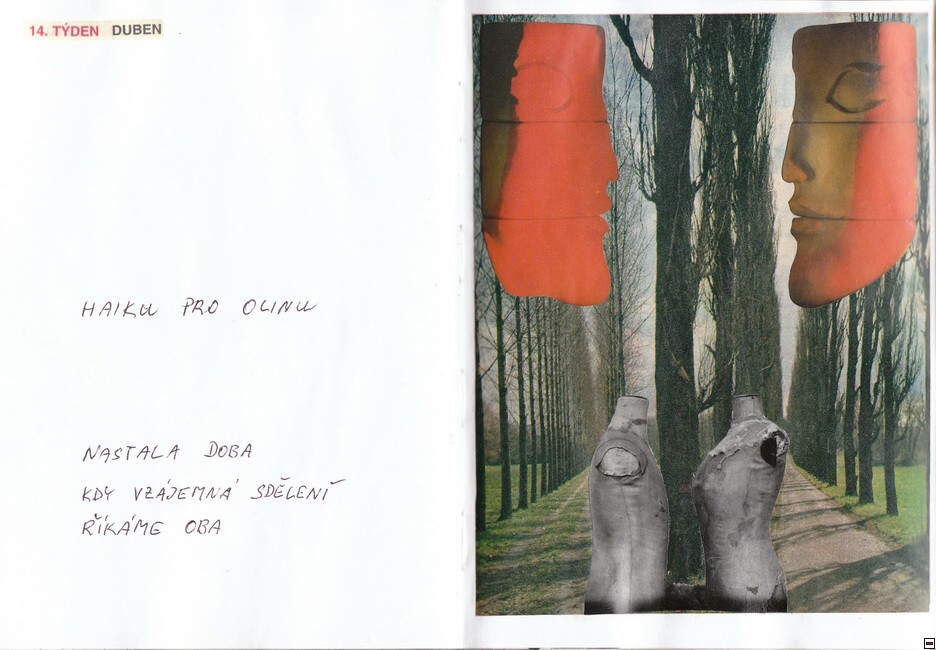 14. TÝDEN DUBEN
HAIKU PRO OLINU
NASTALA DOBA
KDY VZÁJEMNÁ SDĚLENÍ
ŘÍKÁME OBA